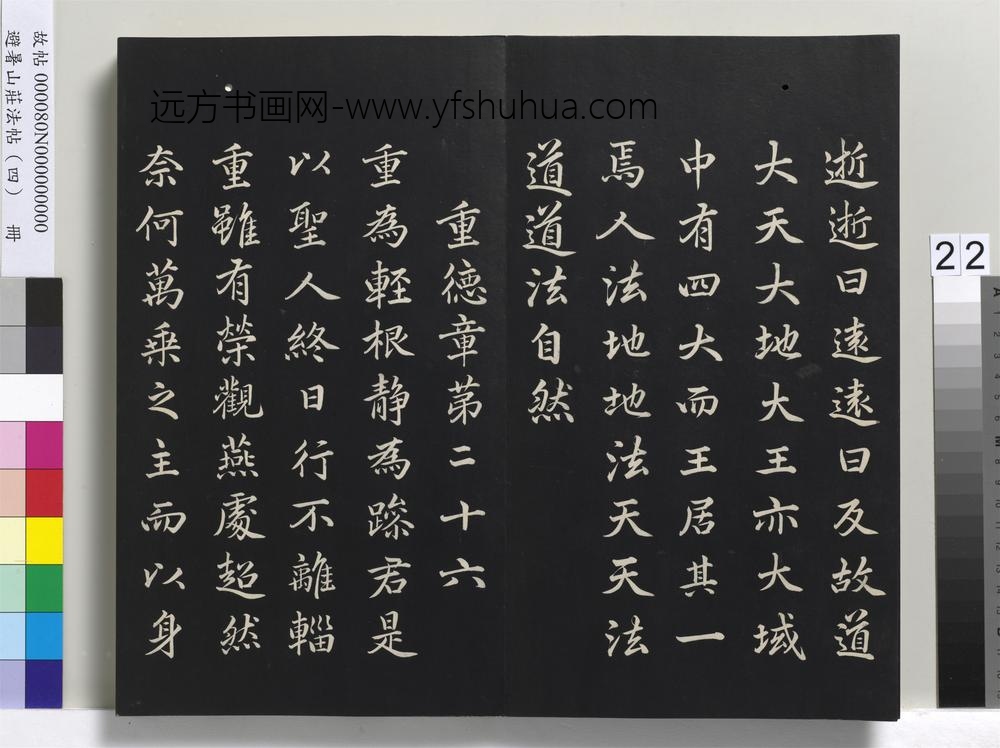 逝逝曰遠遠曰反故道
大天大地大王亦大域
中有四大而王居其一
焉人法地地法天天法
道道法自然
重德章第二十六
重為輕根静為躁君是
以聖人終日行不離輜
重雖有榮觀燕處超然
奈何萬乗之主而以身
远方书画网-www.yfshuhua.com
故帖 000080N000000000
避暑山莊法帖（四） 冊
22